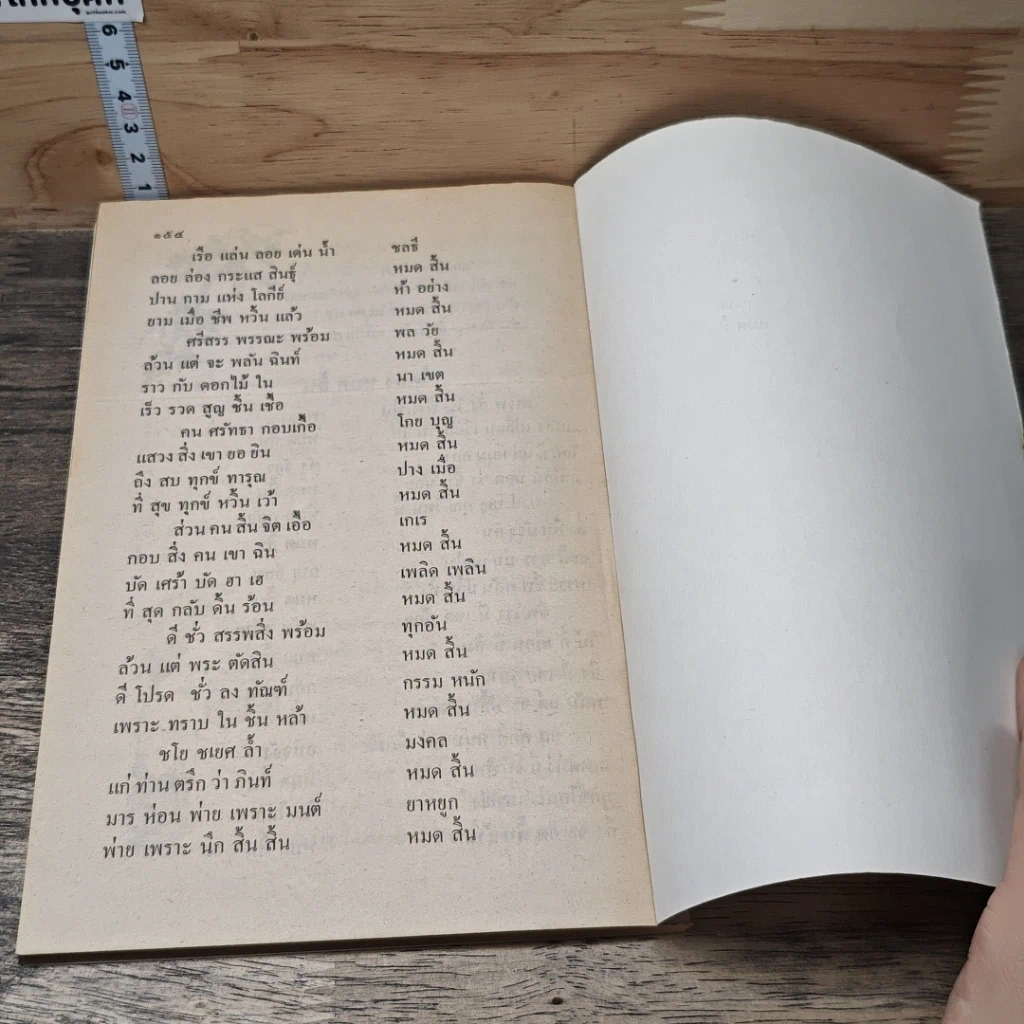 ๑๕๔
เรือ แล่น ลอย เด่น น้ำ ชลธี
ลอย ล่อง กระแส สินธุ์ หมด สิ้น
ปาน กาม แห่ง โลกีย์ ห้า อย่าง
ยาม เมื่อ ชีพ หวิ้น แล้ว หมด สิ้น
ศรีสรร พรรณะ พร้อม พล วัย
ล้วน แต่ จะ พลัน ฉินท์ หมด สิ้น
ราว กับ ดอกไม้ ใน นา เขต
เร็ว รวด สูญ ชิ้น เชื้อ หมด สิ้น
คน ศรัทธา กอบเกื้อ โกย บุญ
แสวง สิ่ง เขา ยอ ยิน หมด สิ้น
ถึง สบ ทุกข์ ทารุณ ปาง เมื่อ
ที่ สุข ทุกข์ หวิ้น เว้า หมด สิ้น
ส่วน คน สิ้น จิต เอื้อ เกเร
กอบ สิ่ง คน เขา ฉิน หมด สิ้น
บัด เศร้า บัด ฮา เฮ เพลิด เพลิน
ที่ สุด กลับ ดิ้น ร้อน หมด สิ้น
ดี ชั่ว สรรพสิ่ง พร้อม ทุกอัน
ล้วน แต่ พระ ตัดสิน หมด สิ้น
ดี โปรด ชั่ว ลง ทัณฑ์ กรรม หนัก
เพราะ ทราบ ใน ชิ้น หล้า หมด สิ้น
ชโย ชเยศ ล้ำ มงคล
แก่ ท่าน ตรึก ว่า ภินท์ หมด สิ้น
มาร ห่อน พ่าย เพราะ มนต์ ยาหยูก
พ่าย เพราะ นึก สิ้น สิ้น หมด สิ้น
6
5
4
3
2
1